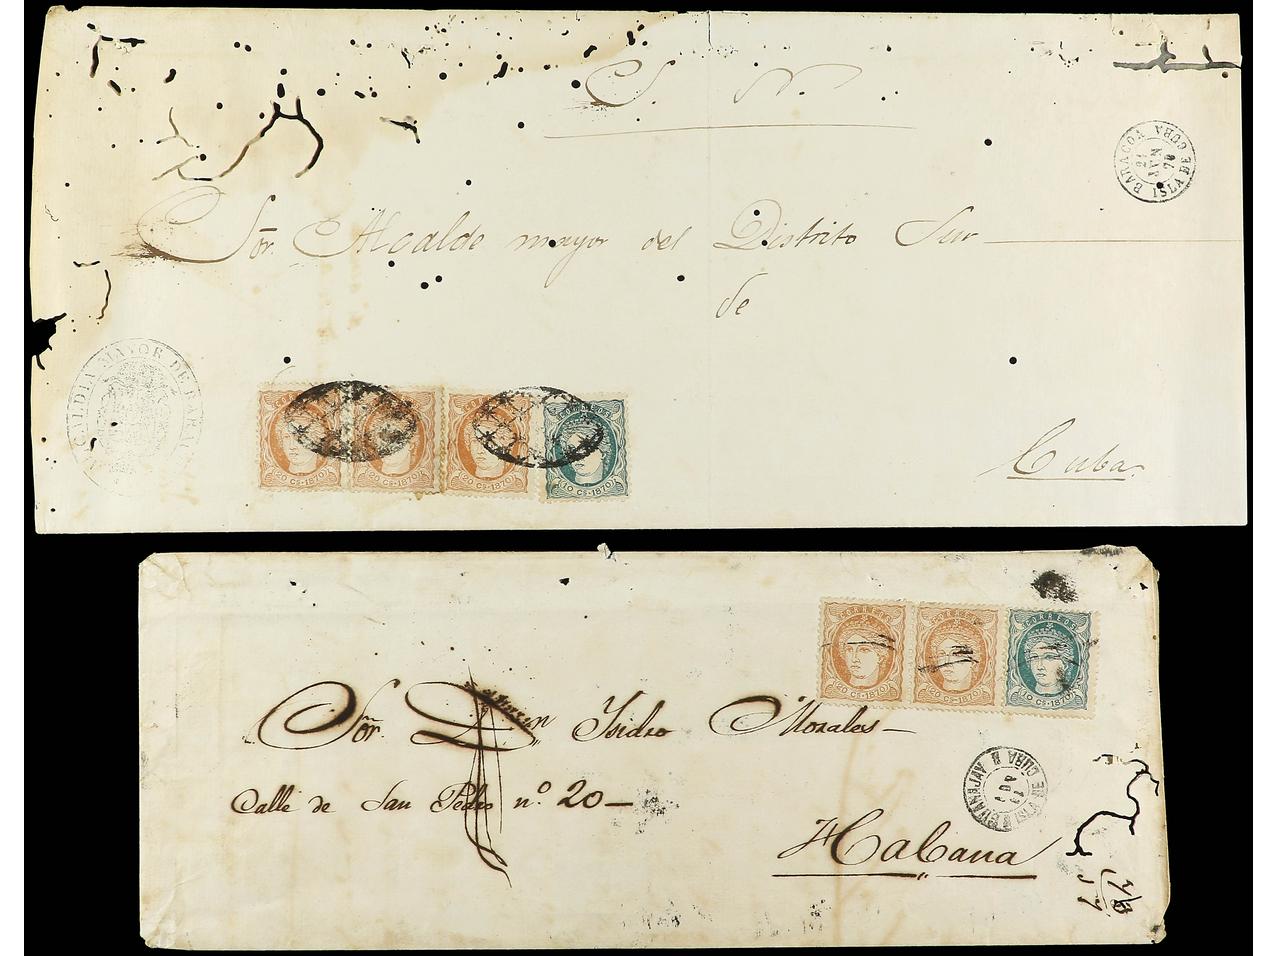 S. N.
BARACOA
ISLA DE CUBA
21
JUN
70
Sor. Alcalde mayor del Distrito Sur
de
Cuba
ALCALDIA MAYOR DE BARAC
20 Cs-1870
20 Cs-1870
CORREOS
20 Cs-1870
CORREOS
10 Cs-1870
CORREOS
20 Cs-1870
CORREOS
20 Cs-1870
CORREOS
10 Cs-1870
Sor. Dn Isidro Morales
Calle de San Pedro no. 20
Habana
ISLA DE CUBA